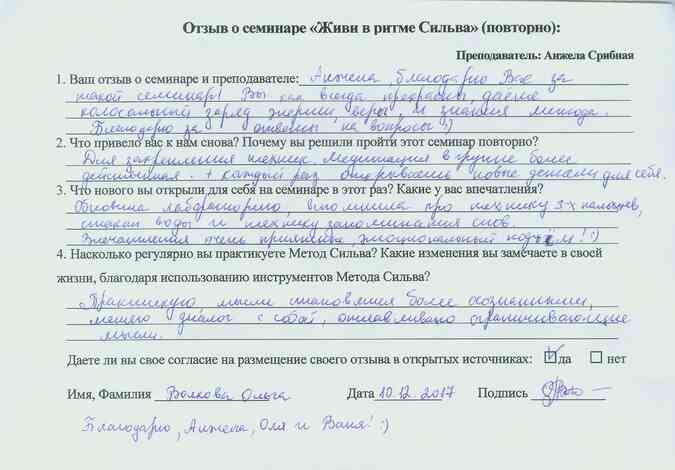 Отзыв о семинаре «Живи в ритме Сильва» (повторно):
Преподаватель: Анжела Срибная
1. Ваш отзыв о семинаре и преподавателе: Анжела, благодарю Вас за
такой семинар! Вы как всегда прекрасны, даёте
колоссальный заряд энергии, веры, и знания метода.
Благодарю за ответы на вопросы :)
2. Что привело вас к нам снова? Почему вы решили пройти этот семинар повторно?
Для закрепления техник. Медитация в группе более
действенная. + каждый раз открываешь новые детали для себя.
3. Что нового вы открыли для себя на семинаре в этот раз? Какие у вас впечатления?
лабораторию, вспомнила про технику 3-х пальцев,
стакан воды и технику запоминания снов.
Впечатления очень приятные, эмоциональный подъём! :)
4. Насколько регулярно вы практикуете Метод Сильва? Какие изменения вы замечаете в своей
жизни, благодаря использованию инструментов Метода Сильва?
Практикую, мысли становятся более осознанными,
диалог с собой, отлавливаю ограничивающие
мысли.
Даете ли вы свое согласие на размещение своего отзыва в открытых источниках: да нет
Имя, Фамилия Волкова Ольга Дата 10.12.2017 Подпись
Благодарю, Анжела, Оля и Ваня! :)